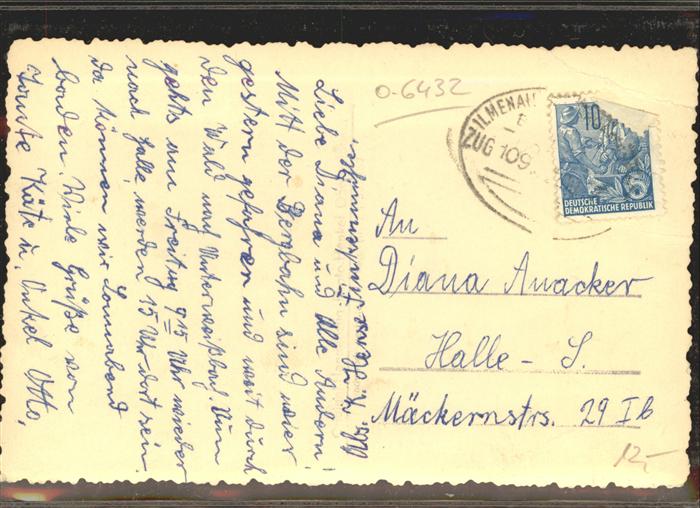 Liebe Diana und alle Andern!
Mitt der Bergbahn sind wier
gestern gefahren und weit durch
den Wald nach Unterweißbach. Nun
gehts am Freitag 9 15 Uhr wieder
nach Halle, werden 15 Uhr dort sein
da können wir Sonnabend
baden. Viele Grüße von
Tante Käte u. Onkel Otto,
0-6432
ILMENAU
ZUG 109
10
DEUTSCHE
DEMOKRATISCHE REPUBLIK
An
Diana Anacker
Halle - S.
Mäckernstrs. 29 I b
12,-